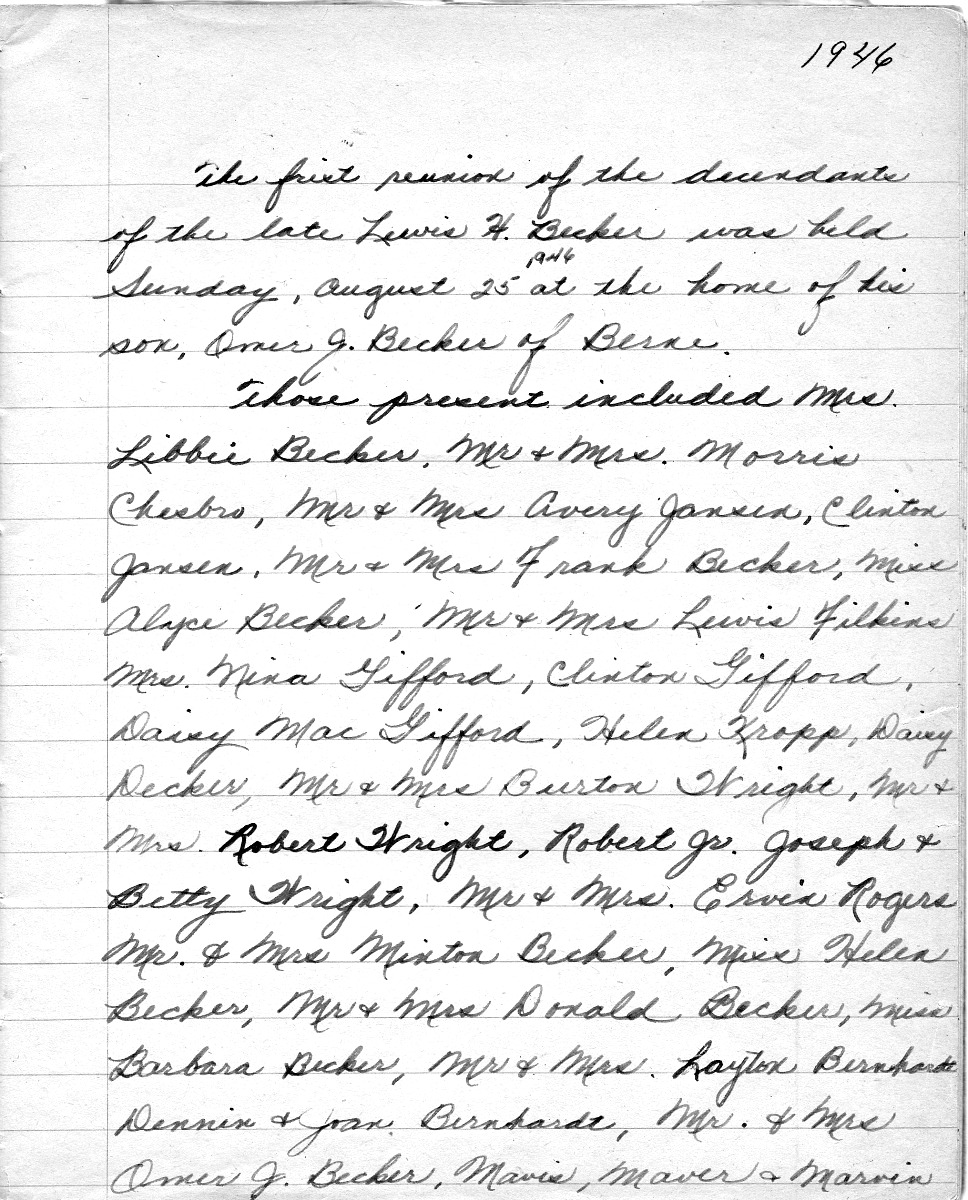 1946
The frist reunion of the decendants
of the late Lewis H. Becker was held
1946
Sunday, August 25 at the home of his
son, Omer J. Becker of Berne.
Those present included Mrs.
Libbie Becker, Mr & Mrs. Morris
Chesbro, Mr & Mrs Avery Jansen, Clinton
Jansen, Mr & Mrs Frank Becker, Miss
Alyce Becker, Mr & Mrs Lewis Filkins
Mrs. Nina Gifford, Clinton Gifford,
Daisy Mae Gifford, Helen Kropp, Daisy
Decker, Mr & Mrs Burton Wright, Mr &
Mrs. Robert Wright, Robert Jr. Joseph &
Betty Wright, Mr & Mrs. Ervin Rogers
Mr. & Mrs Minton Becker, Miss Helen
Becker, Mr & Mrs Donald Becker, Miss
Barbara Becker, Mr & Mrs. Layton Bernhardt
Dennin & Joan Bernhardt, Mr. & Mrs
Omer J. Becker, Mavis, Maver & Marvin